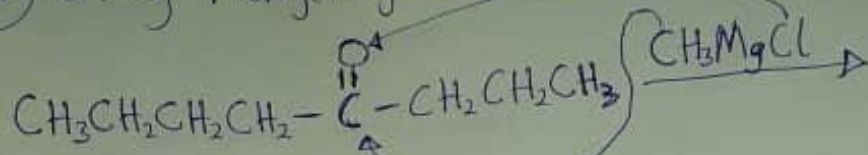 O
||
CH₃CH₂CH₂CH₂-C-CH₂CH₂CH₃ CH₃MgCl